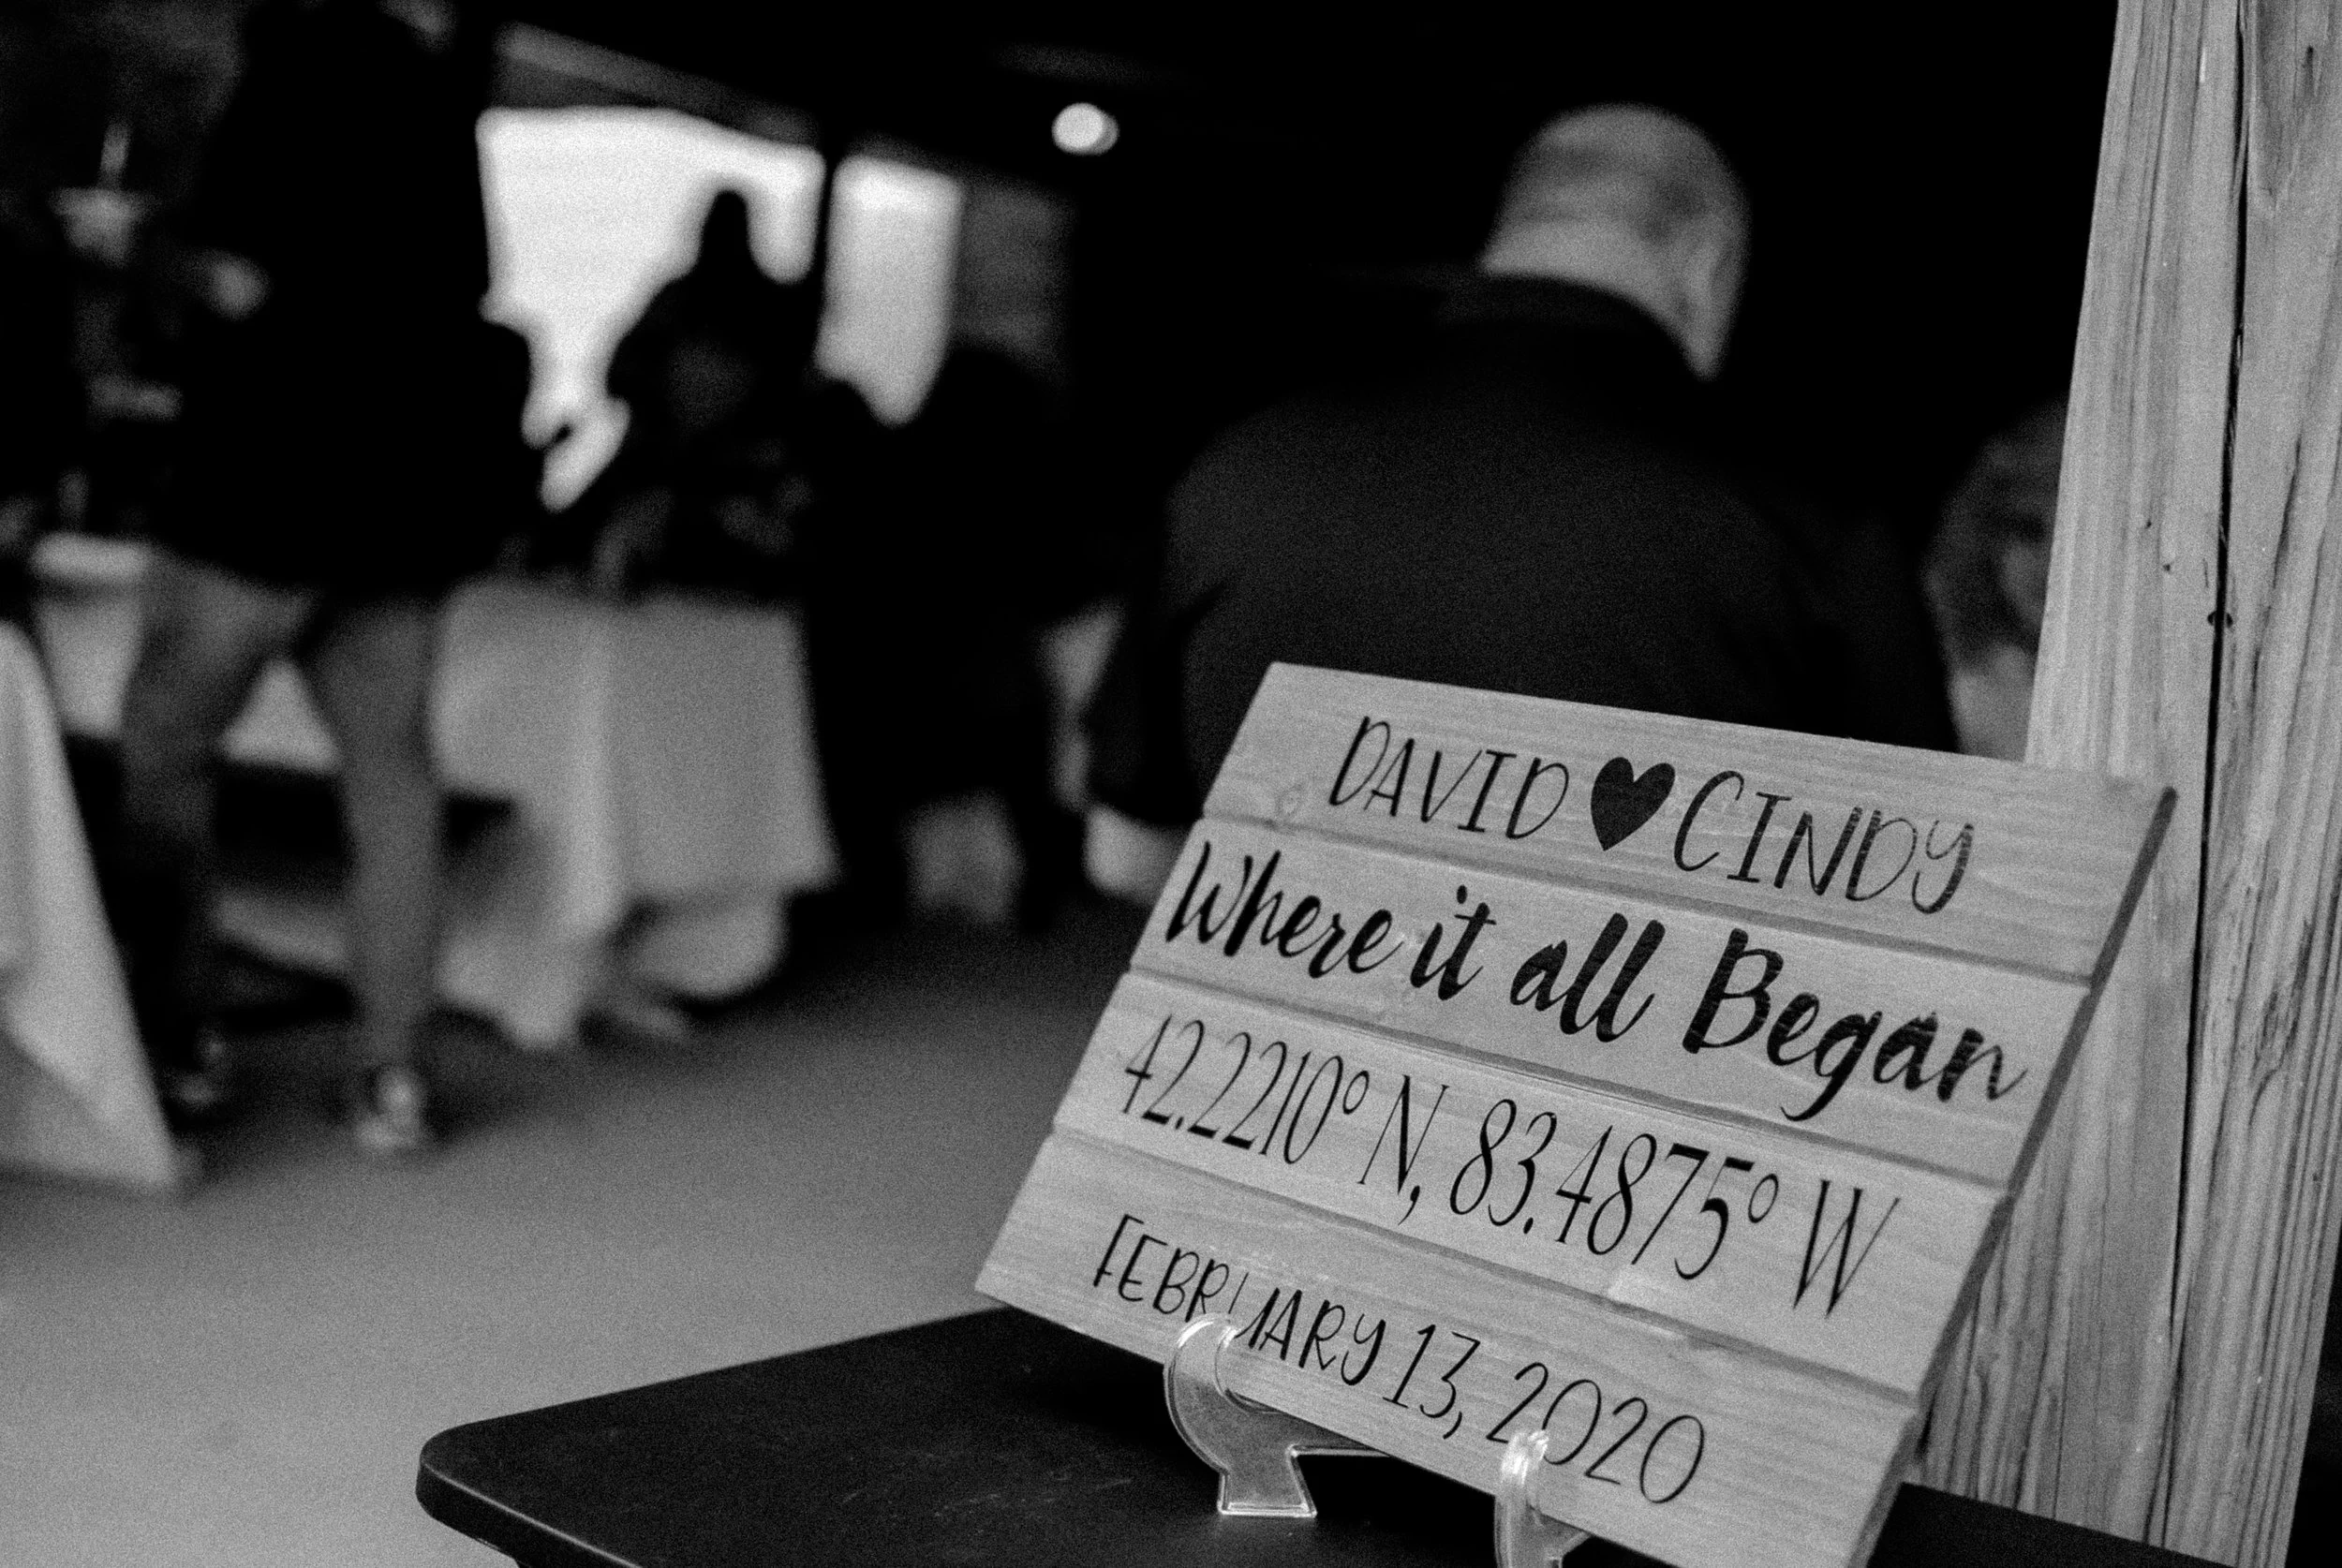 DAVID ♥ CINDY
Where it all Began
42.2210° N, 83.4875° W
FEBRUARY 13, 2020